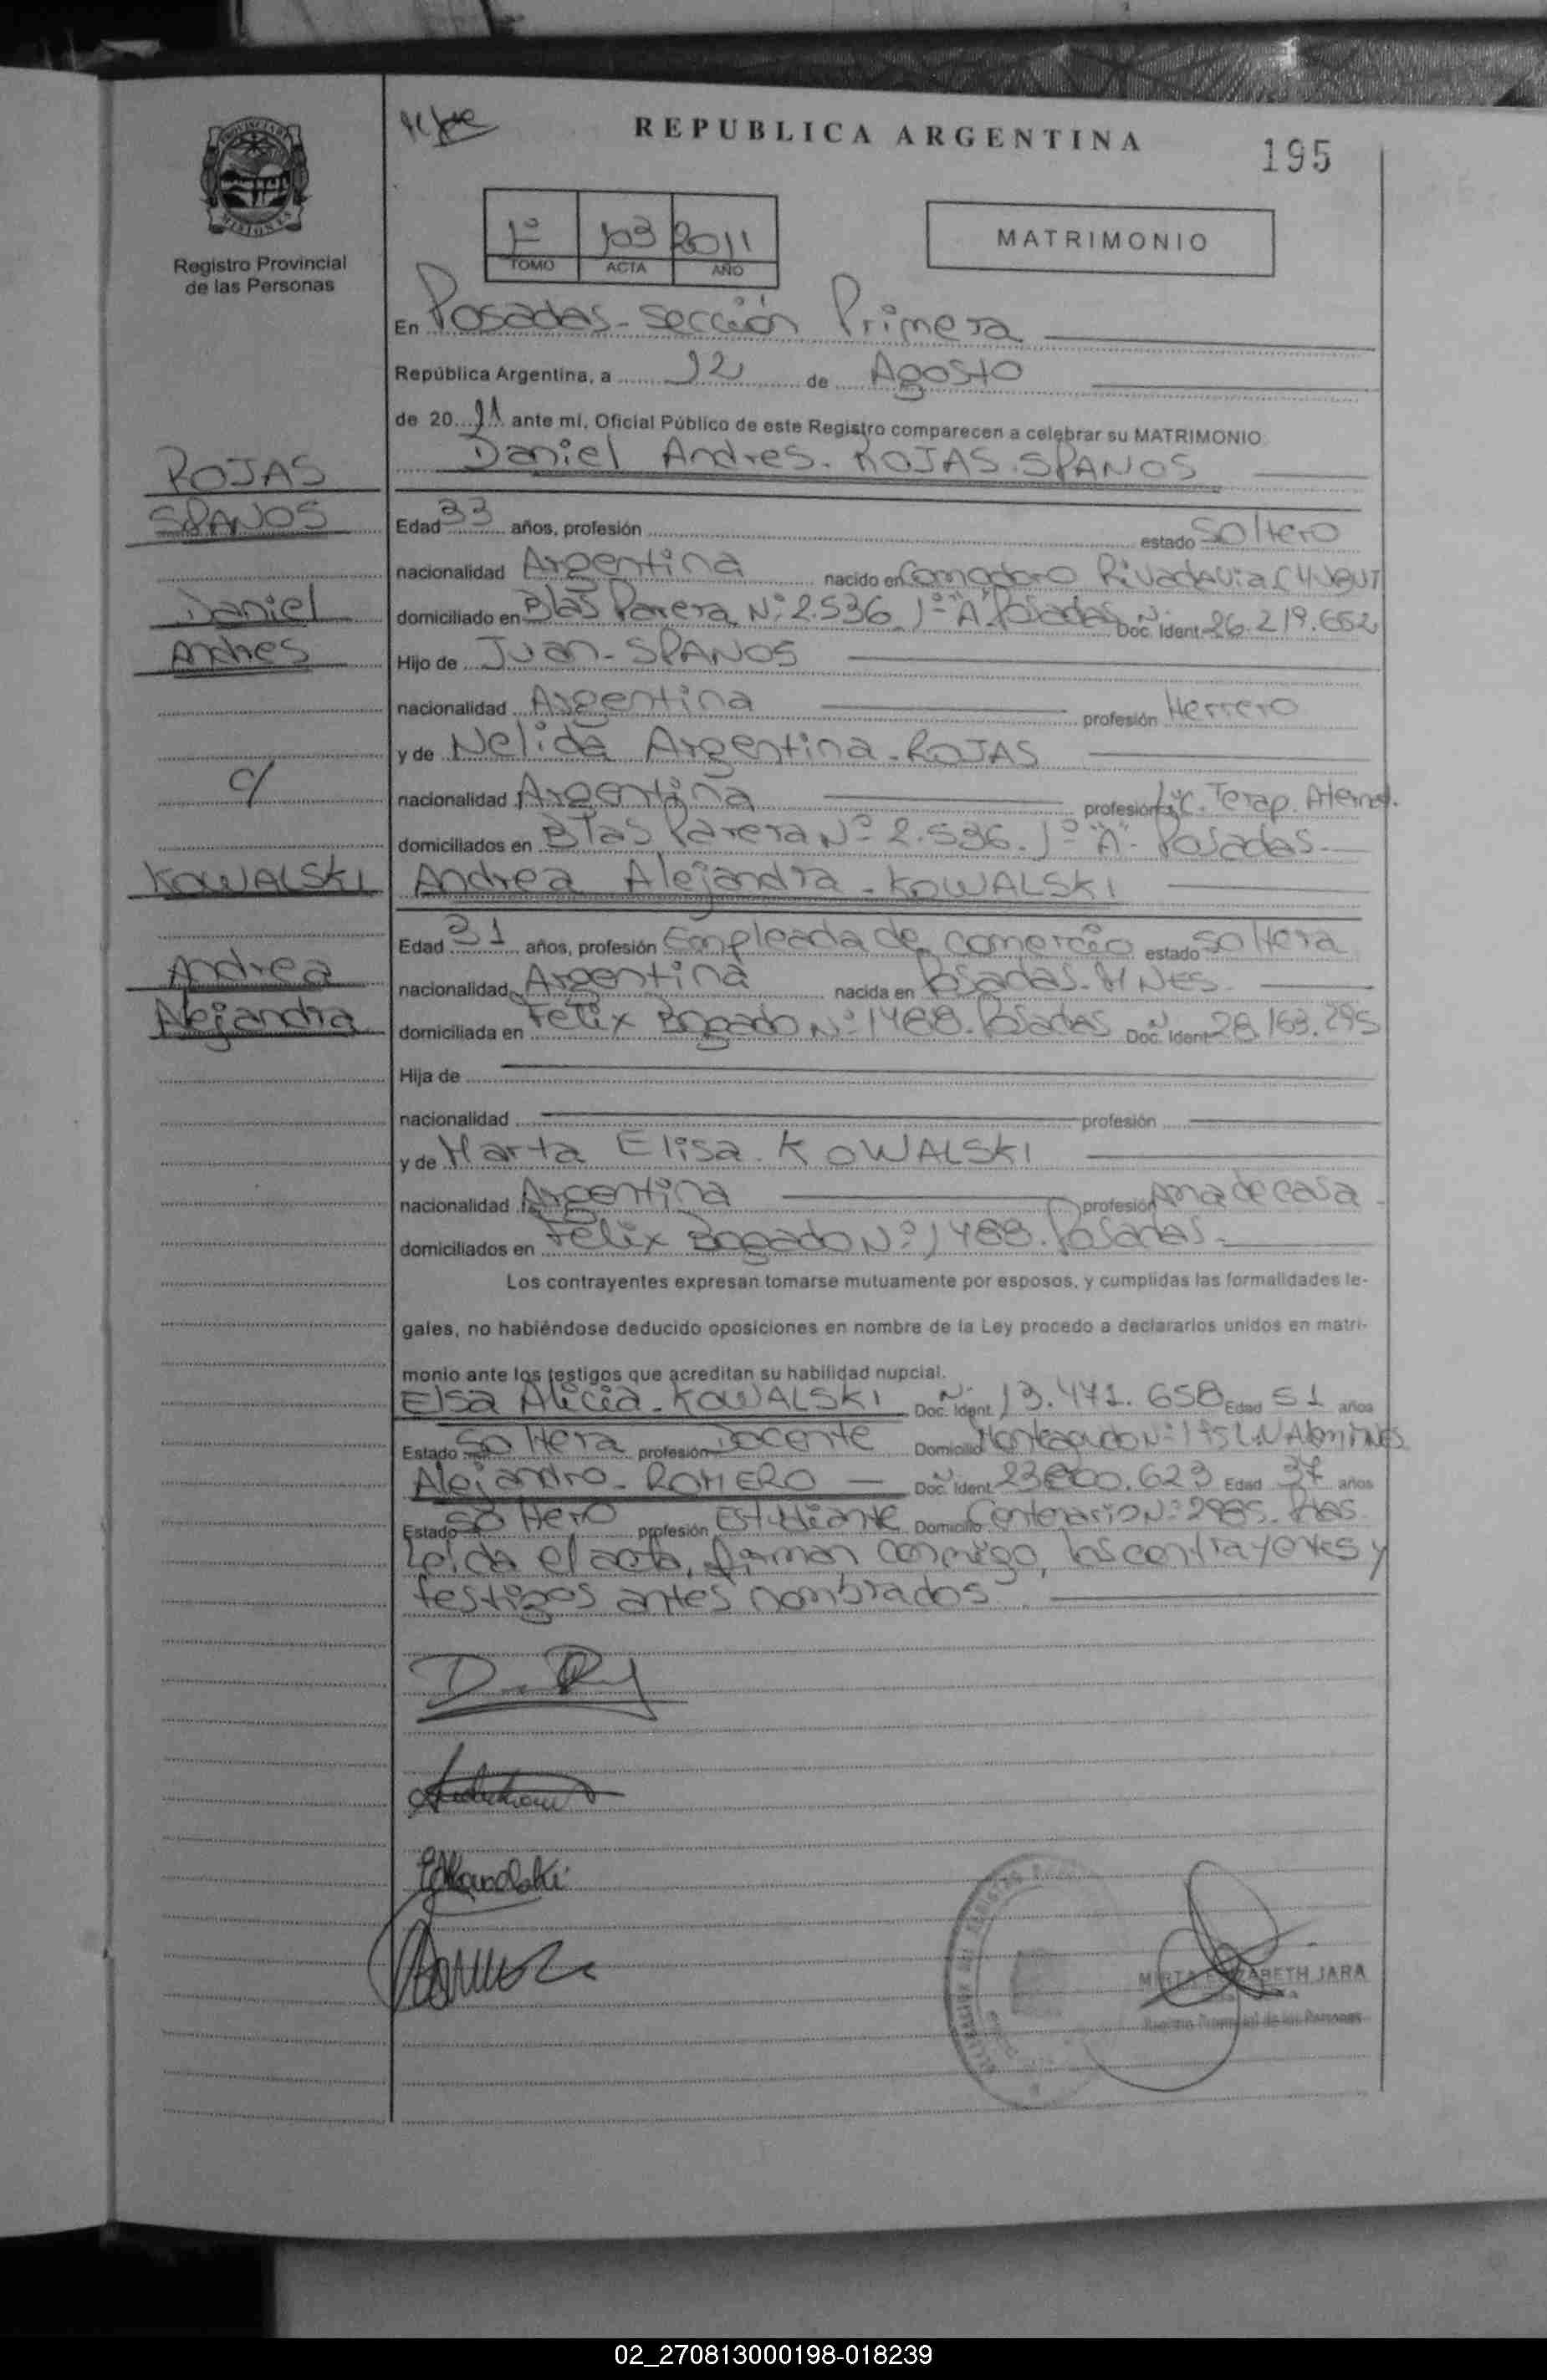 REPUBLICA ARGENTINA
195
1º 103 2011
TOMO ACTA AÑO
MATRIMONIO
Registro Provincial
de las Personas
En Posadas - Sección Primera
República Argentina, a 12 de Agosto
de 20 11 ante mí, Oficial Público de este Registro comparecen a celebrar su MATRIMONIO
ROJAS
SPANOS
Daniel
Andres
c/
KOWALSKI
Andrea
Alejandra
Daniel Andres. ROJAS. SPANOS
Edad 33 años, profesión estado Soltero
nacionalidad Argentina nacido en Comodoro Rivadavia CHUBUT
domiciliado en Blas Parera Nº 2.536 1º "A" Posadas Doc. Ident. 26.219.652
Hijo de Juan - SPANOS
nacionalidad Argentina profesión Herrero
y de Nelida Argentina - ROJAS
nacionalidad Argentina profesión Lic. Terap. Aternat.
domiciliados en Blas Parera Nº 2.536. 1º "A" - Posadas
Andrea Alejandra - KOWALSKI
Edad 31 años, profesión Empleada de comercio estado Soltera
nacionalidad Argentina nacida en Posadas - MNES
domiciliada en Felix Bogado Nº 1488. Posadas Doc. Ident. 28.163.295
Hija de
nacionalidad profesión
y de Marta Elisa. KOWALSKI
nacionalidad Argentina profesión Ama de casa
domiciliados en Felix Bogado Nº 1488. Posadas
Los contrayentes expresan tomarse mutuamente por esposos, y cumplidas las formalidades le-
gales, no habiéndose deducido oposiciones en nombre de la Ley procedo a declararlos unidos en matri-
monio ante los testigos que acreditan su habilidad nupcial.
Elsa Alicia - KOWALSKI Doc. Ident. 13.471.658 Edad 51 años
Estado Soltera profesión Docente Domicilio Monteagudo
Alejandro - ROMERO Doc. Ident. 23.800.623 Edad 37 años
Estado Soltero profesión Estudiante Domicilio Centenario Nº 2985. Pdas
Leida el acta, firman conmigo, los contrayentes y
testigos antes nombrados
EAKowalski
MIRTA ELIZABETH JARA
Registro Provincial de las Personas
02_270813000198-018239